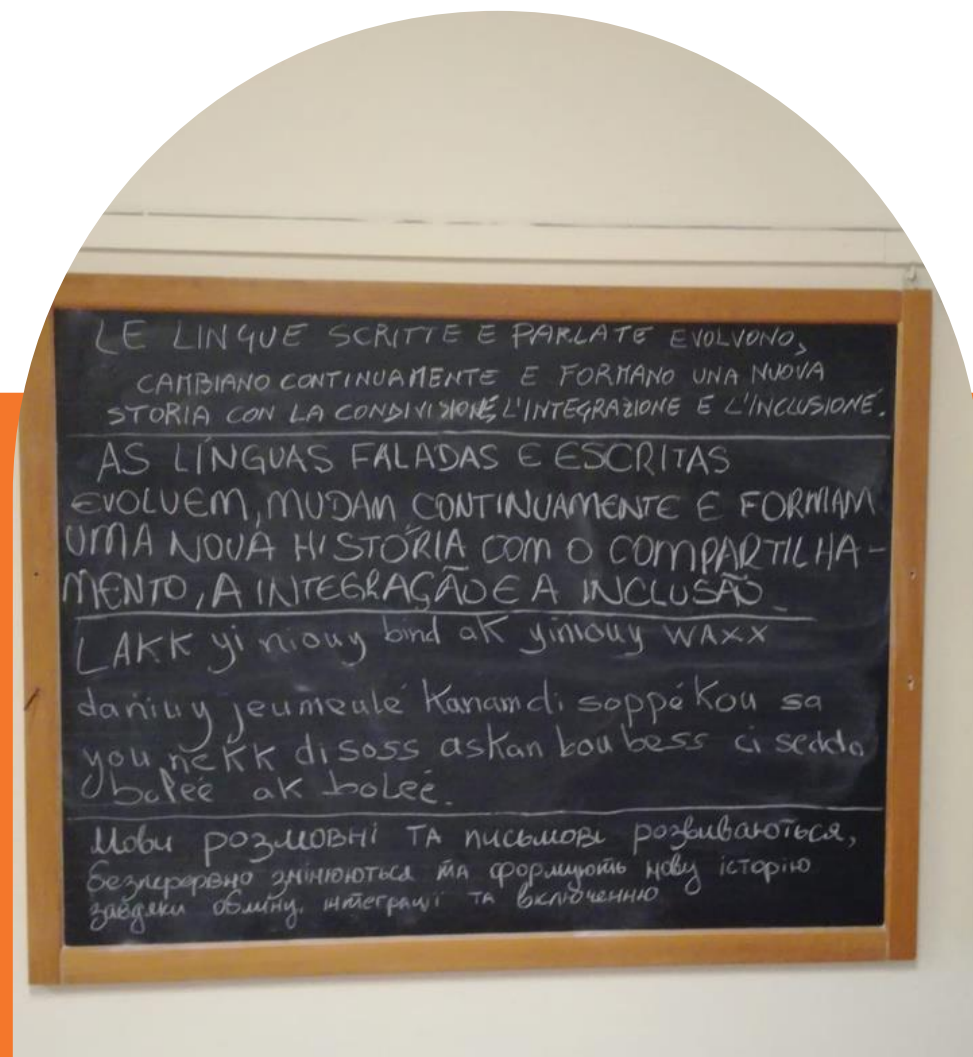 LE LINGUE SCRITTE E PARLATE EVOLVONO,
CAMBIANO CONTINUAMENTE E FORMANO UNA NUOVA
STORIA CON LA CONDIVISIONE, L'INTEGRAZIONE E L'INCLUSIONE.
AS LÍNGUAS FALADAS E ESCRITAS
EVOLUEM, MUDAM CONTINUAMENTE E FORMAM
UMA NOVA HISTÓRIA COM O COMPARTILHA-
MENTO, A INTEGRAÇÃO E A INCLUSÃO
LAKK yi niouy bind ak yiniouy WAXX
daniuy jeumeulé Kanam di soppékou sa
you nekk di soss askan bou bess ci seddo
boleé ak boleé.
Мови розмовні та письмові розвиваються,
безперервно змінюються та формують нову історію
завдяки обміну, інтеграції та включенню